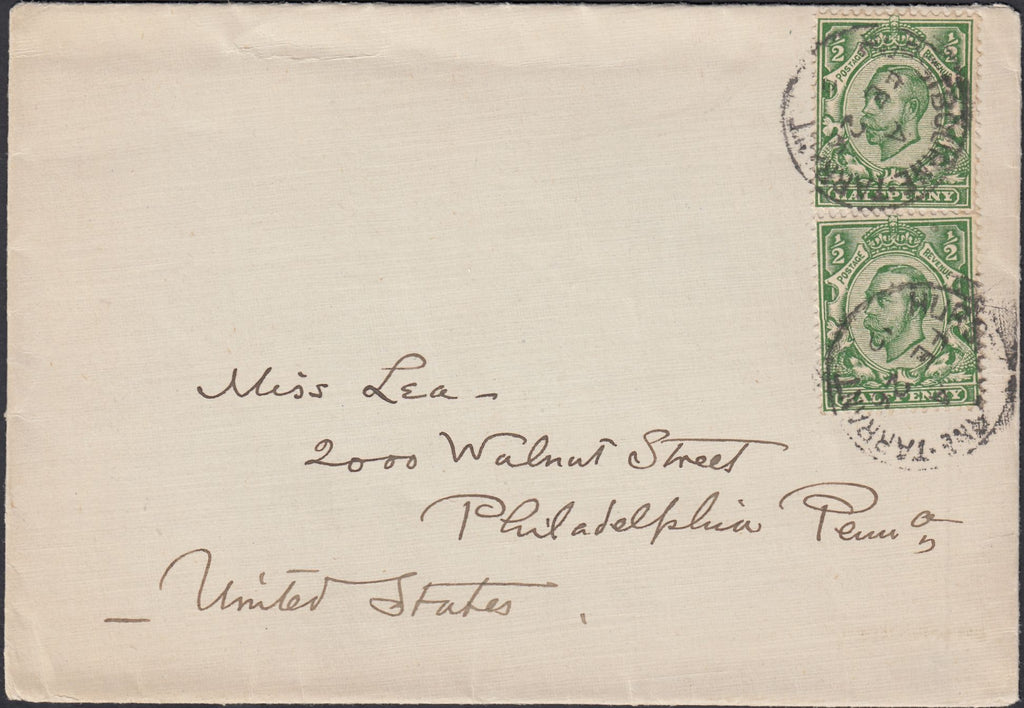 ½ ½
POSTAGE REVENUE
HALFPENNY
½ ½
POSTAGE REVENUE
HALFPENNY
Miss Lea -
2000 Walnut Street
Philadelphia Penna
United States